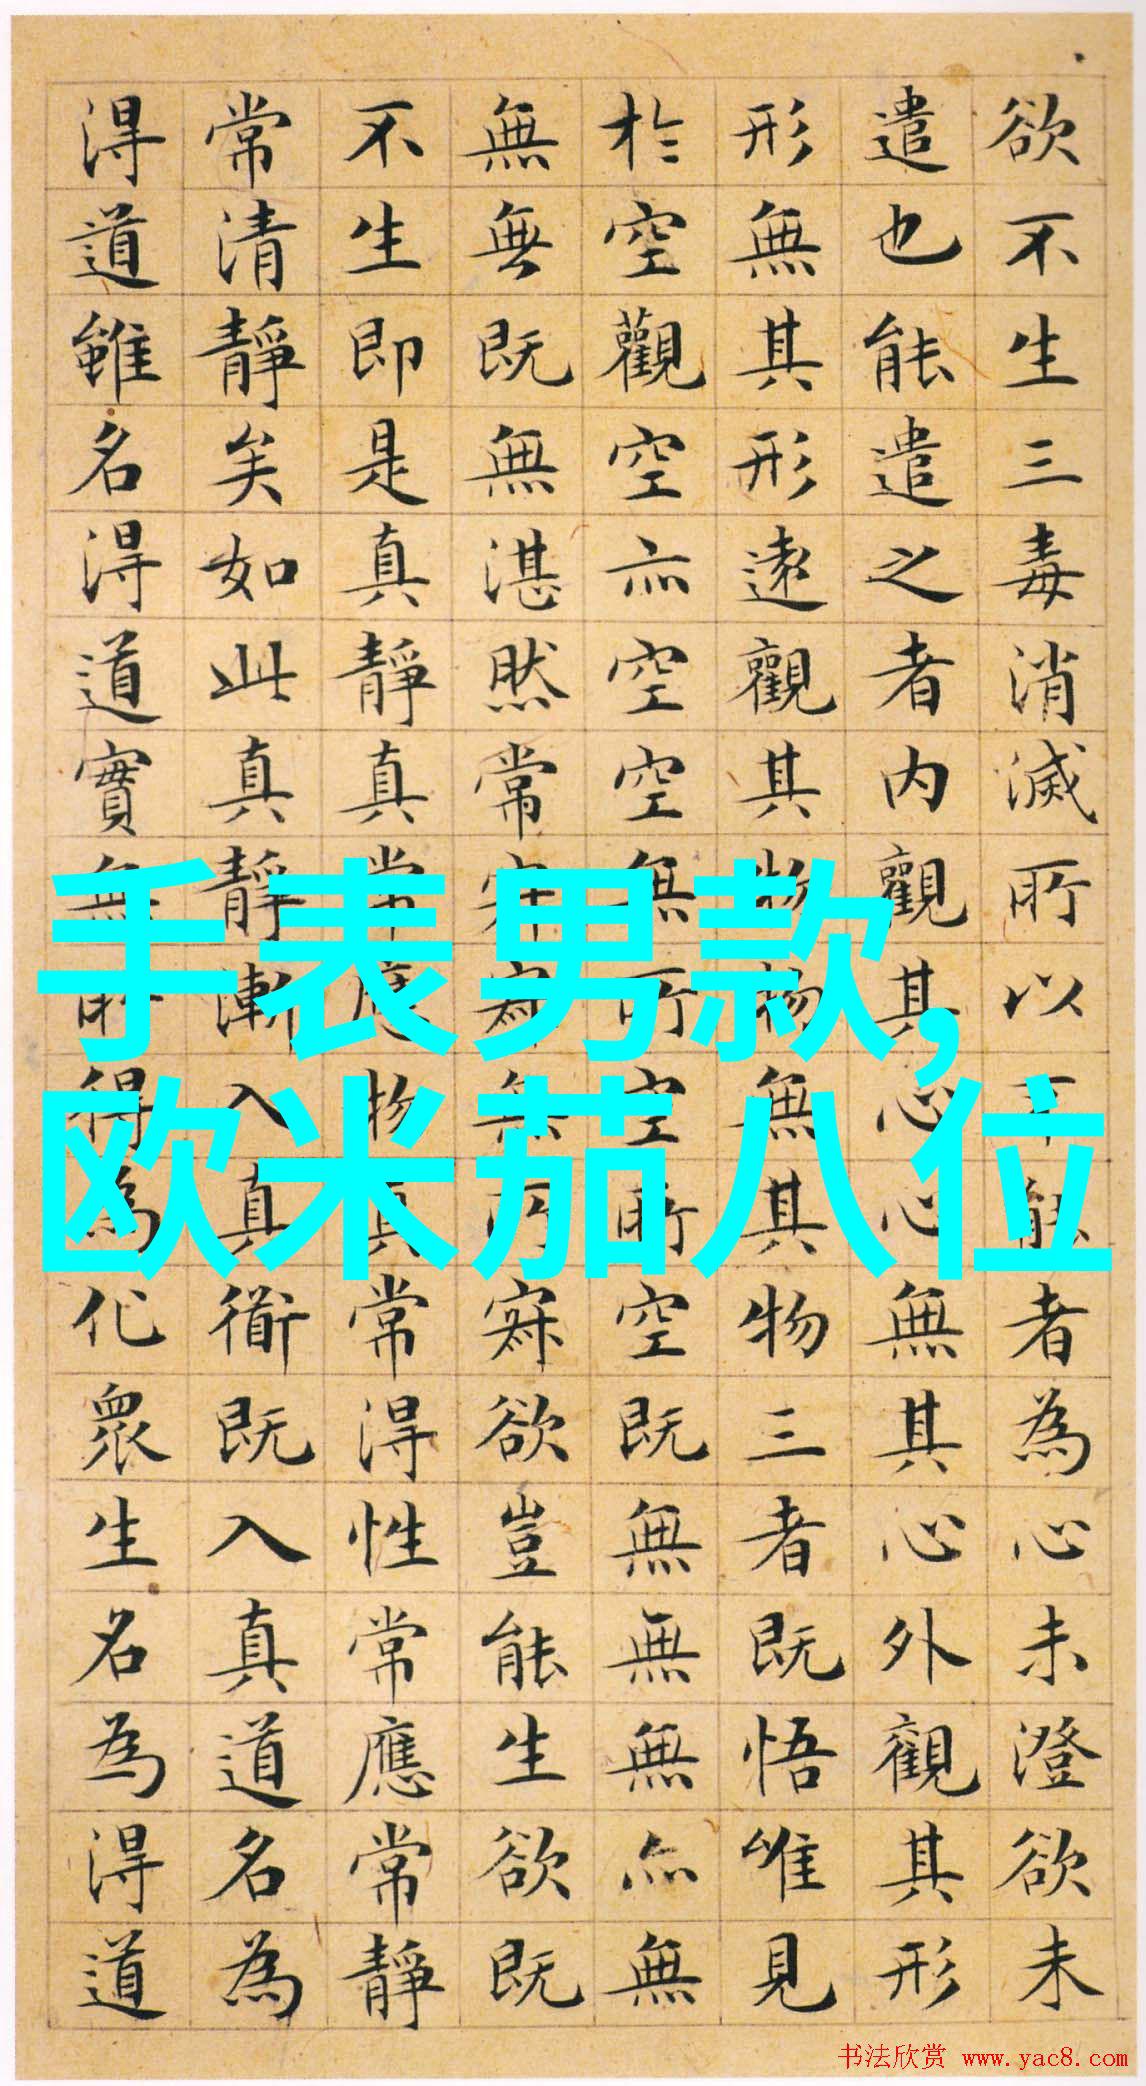 欲不生三毒消滅所以不能者為心未澄欲未
遣也能遣之者内觀其心心無其心外觀其形
形無其形遠觀其物物無其物三者既悟唯見
於空觀空亦空空無所空所空既無無無亦無
無無既無湛然常寂寂無所寂欲豈能生欲既
不生即是真靜真常應物真常得性常應常靜
常清靜矣如此真靜漸入真衜既入真道名為
得道雖名得道實無所得為化眾生名為得道
手表男款,
欧米茄八位
书法欣赏 www.yac8.com